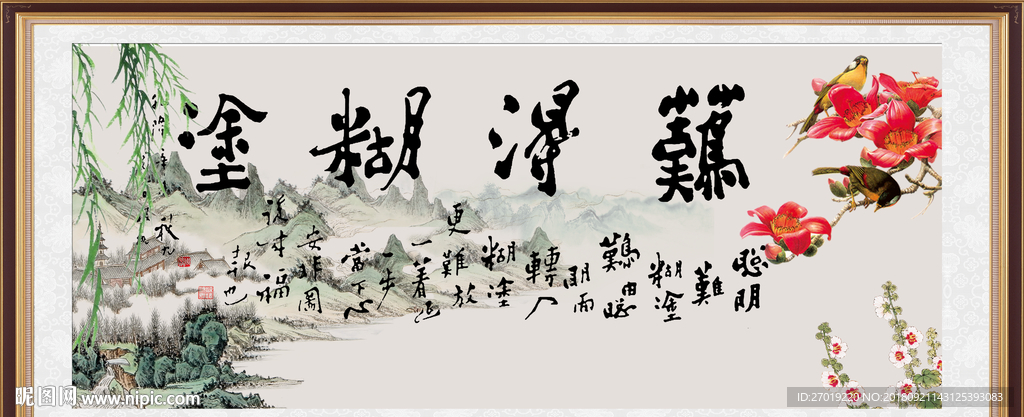 難得糊塗
聰明
難
糊塗
難由聰
明而
轉入
糊塗
更難放
一着退
一步
當下心
安非圖
後来福
報也
昵图网 www.nipic.com
ID:27019220 NO:20180921143125393083